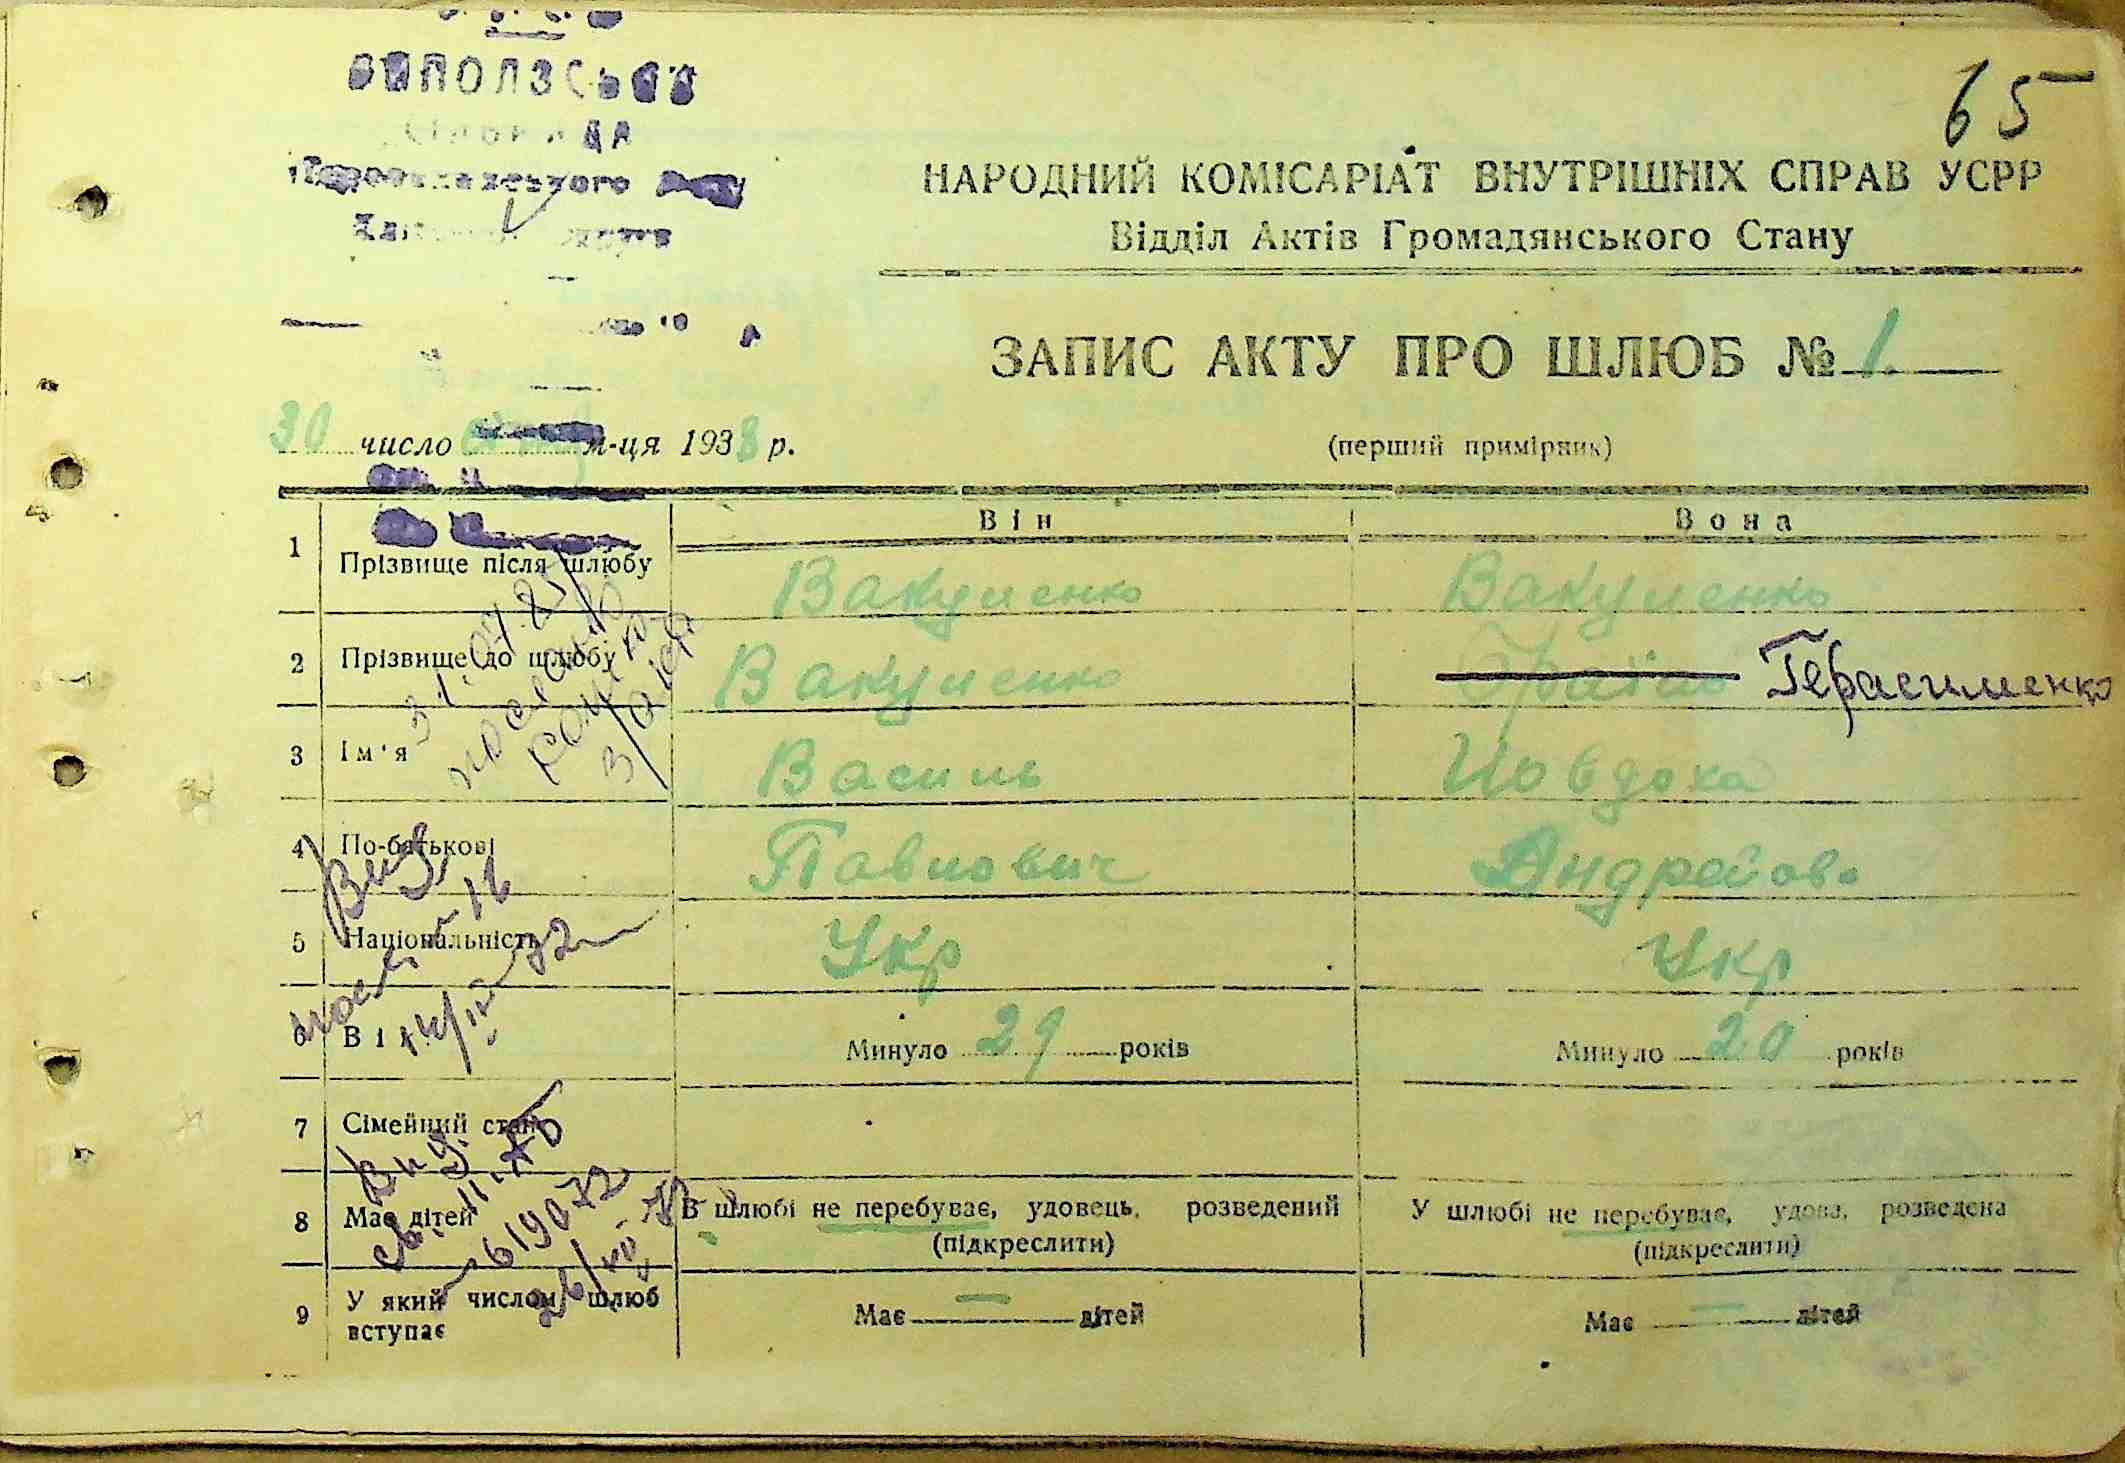 65
СІЛЬРАДА
НАРОДНИЙ КОМІСАРІАТ ВНУТРІШНІХ СПРАВ УСРР
Відділ Актів Громадянського Стану
ЗАПИС АКТУ ПРО ШЛЮБ № 1.
(перший примірник)
30 число м-ця 1938 р.
Він Вона
1 Прізвище після шлюбу Вакуленко Вакуленко
2 Прізвище до шлюбу Вакуленко Герасименко
3 Ім'я Василь Йовдоха
4 По-батькові Павлович Андреёва
5 Національність Укр Укр
6 Вік Минуло 29 років Минуло 20 років
7 Сімейний стан
8 Має дітей В шлюбі не перебуває, удовець, розведений У шлюбі не перебуває, удова, розведена
(підкреслити) (підкреслити)
9 У який числом шлюб вступає Має — дітей Має — дітей
31.07.85
Вид.
14/IV-72
Вид.
св. II-АБ
619072